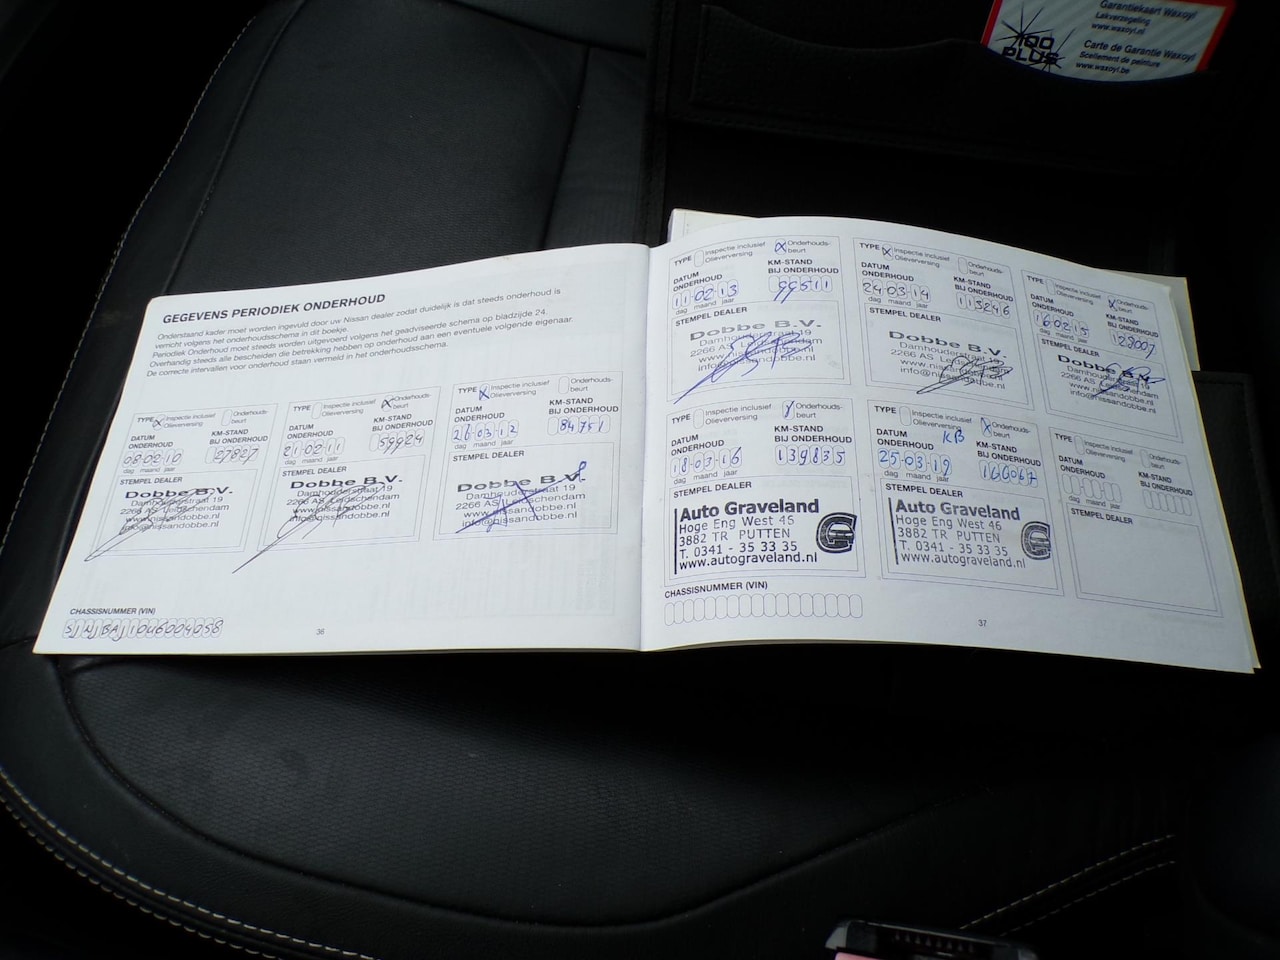 Garantiekaart Waxoyl
Lakverzegeling
www.waxoyl.nl
100
PLUS
Carte de Garantie Waxoyl
Scellement de peinture
www.waxoyl.be
GEGEVENS PERIODIEK ONDERHOUD
Onderstaand kader moet worden ingevuld door uw Nissan dealer zodat duidelijk is dat steeds onderhoud is
verricht volgens het onderhoudsschema in dit boekje.
Periodiek Onderhoud moet steeds worden uitgevoerd volgens het geadviseerde schema op bladzijde 24.
Overhandig steeds alle bescheiden die betrekking hebben op onderhoud aan een eventuele volgende eigenaar.
De correcte intervallen voor onderhoud staan vermeld in het onderhoudsschema.
TYPE X Inspectie inclusief Olieverversing Onderhouds-beurt
DATUM ONDERHOUD KM-STAND BIJ ONDERHOUD
08-02-10 27827
dag maand jaar
STEMPEL DEALER
Dobbe B.V.
Damhouderstraat 19
2266 AS Leidschendam
www.nissandobbe.nl
info@nissandobbe.nl
TYPE Inspectie inclusief Olieverversing X Onderhouds-beurt
DATUM ONDERHOUD KM-STAND BIJ ONDERHOUD
21-02-11 59924
dag maand jaar
STEMPEL DEALER
Dobbe B.V.
Damhouderstraat 19
2266 AS Leidschendam
www.nissandobbe.nl
info@nissandobbe.nl
TYPE X Inspectie inclusief Olieverversing Onderhouds-beurt
DATUM ONDERHOUD KM-STAND BIJ ONDERHOUD
26-03-12 84751
dag maand jaar
STEMPEL DEALER
Dobbe B.V.
Damhouderstraat 19
2266 AS Leidschendam
www.nissandobbe.nl
info@nissandobbe.nl
CHASSISNUMMER (VIN)
SJNJBAJ10U6004058
36
TYPE Inspectie inclusief Olieverversing X Onderhouds-beurt
DATUM ONDERHOUD KM-STAND BIJ ONDERHOUD
11-02-13 99511
dag maand jaar
STEMPEL DEALER
Dobbe B.V.
Damhouderstraat 19
2266 AS Leidschendam
www.nissandobbe.nl
info@nissandobbe.nl
TYPE X Inspectie inclusief Olieverversing Onderhouds-beurt
DATUM ONDERHOUD KM-STAND BIJ ONDERHOUD
24-03-14 113246
dag maand jaar
STEMPEL DEALER
Dobbe B.V.
Damhouderstraat 19
2266 AS Leidschendam
www.nissandobbe.nl
info@nissandobbe.nl
TYPE Inspectie inclusief Olieverversing X Onderhouds-beurt
DATUM ONDERHOUD KM-STAND BIJ ONDERHOUD
16-02-15 128007
dag maand jaar
STEMPEL DEALER
Dobbe B.V.
Damhouderstraat 19
2266 AS Leidschendam
www.nissandobbe.nl
info@nissandobbe.nl
TYPE Inspectie inclusief Olieverversing Onderhouds-beurt
DATUM ONDERHOUD KM-STAND BIJ ONDERHOUD
18-03-16 139835
dag maand jaar
STEMPEL DEALER
Auto Graveland
Hoge Eng West 45
3882 TR PUTTEN
T. 0341 - 35 33 35
www.autograveland.nl
TYPE Inspectie inclusief Olieverversing X Onderhouds-beurt
KB
DATUM ONDERHOUD KM-STAND BIJ ONDERHOUD
25-03-19 166067
dag maand jaar
STEMPEL DEALER
Auto Graveland
Hoge Eng West 45
3882 TR PUTTEN
T. 0341 - 35 33 35
www.autograveland.nl
TYPE Inspectie inclusief Olieverversing Onderhouds-beurt
DATUM ONDERHOUD KM-STAND BIJ ONDERHOUD
dag maand jaar
STEMPEL DEALER
CHASSISNUMMER (VIN)
37